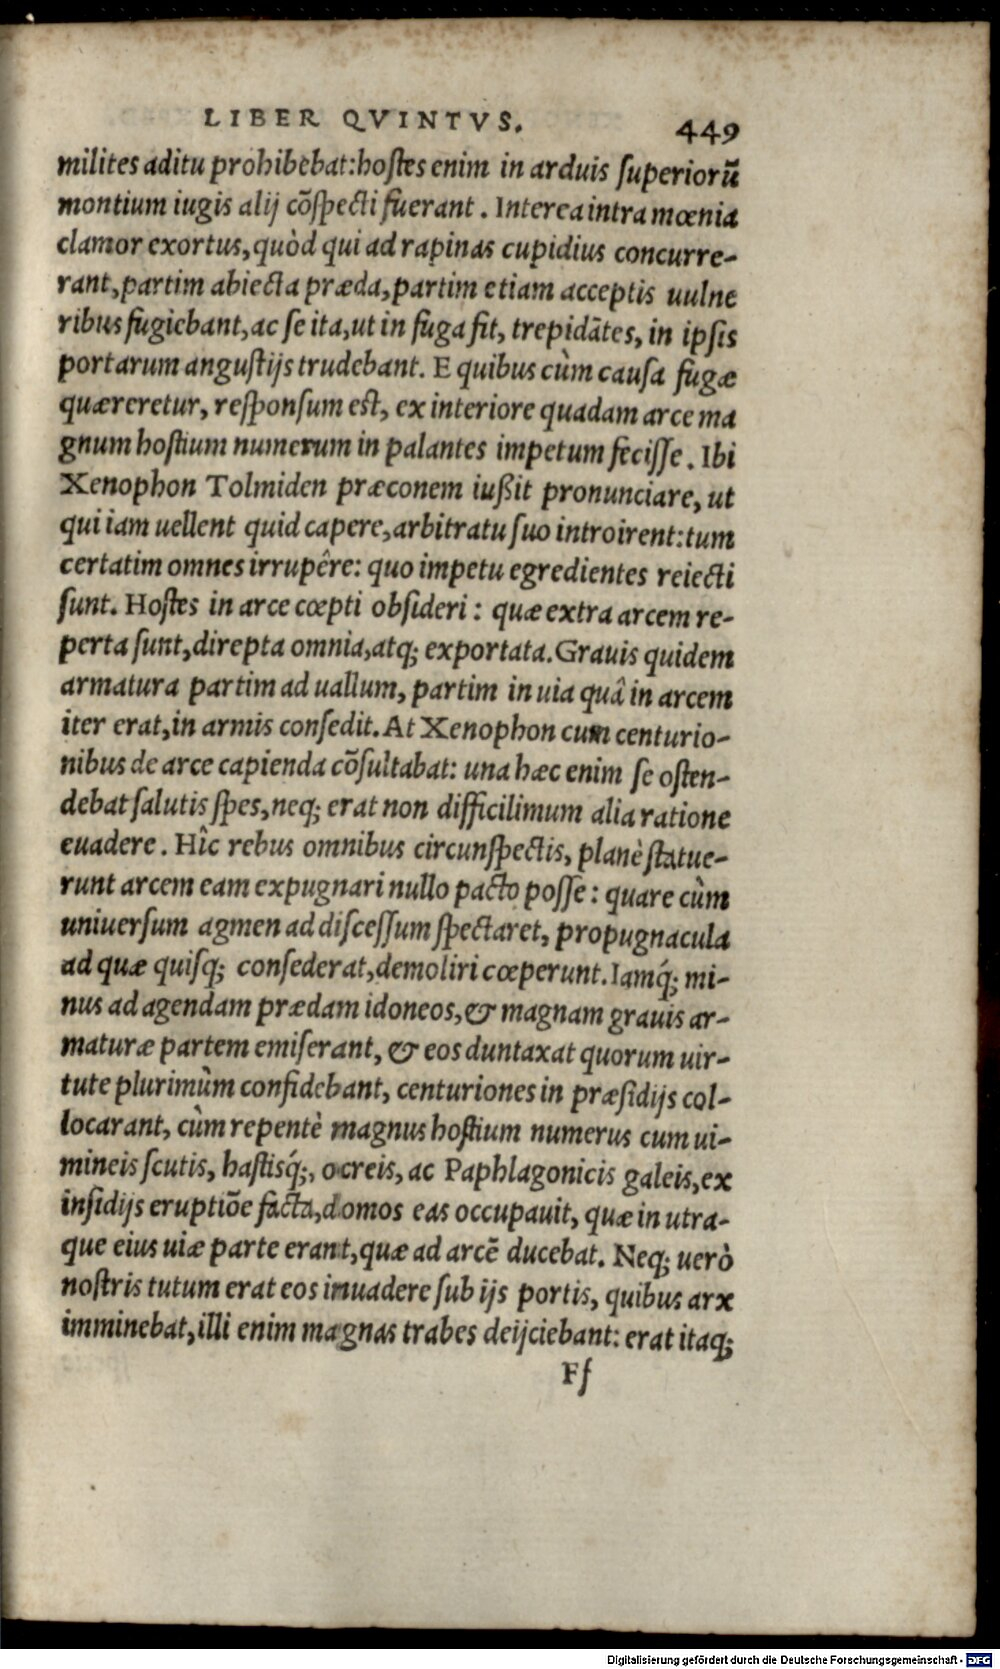 LIBER QVINTVS. 449
milites aditu prohibebat: hoſtes enim in arduis ſuperiorũ
montium iugis alij cõſpecti fuerant. Interea intra mœnia
clamor exortus, quòd qui ad rapinas cupidius concurre-
rant, partim abiecta præda, partim etiam acceptis uulne
ribus fugiebant, ac ſe ita, ut in fuga fit, trepidãtes, in ipſis
portarum anguſtijs trudebant. E quibus cùm cauſa fugæ
quæreretur, reſponſum eſt, ex interiore quadam arce ma
gnum hoſtium numerum in palantes impetum feciſſe. Ibi
Xenophon Tolmiden præconem iußit pronunciare, ut
qui iam uellent quid capere, arbitratu ſuo introirent: tum
certatim omnes irrupêre: quo impetu egredientes reiecti
ſunt. Hoſtes in arce cœpti obſideri: quæ extra arcem re-
perta ſunt, direpta omnia, atq; exportata. Grauis quidem
armatura partim ad uallum, partim in uia quâ in arcem
iter erat, in armis conſedit. At Xenophon cum centurio-
nibus de arce capienda cõſultabat: una hæc enim ſe oſten-
debat ſalutis ſpes, neq; erat non difficilimum alia ratione
euadere. Hîc rebus omnibus circunſpectis, planè ſtatue-
runt arcem eam expugnari nullo pacto poſſe: quare cùm
uniuerſum agmen ad diſceſſum ſpectaret, propugnacula
ad quæ quiſq; conſederat, demoliri cœperunt. Iamq́; mi-
nus ad agendam prædam idoneos, & magnam grauis ar-
maturæ partem emiſerant, & eos duntaxat quorum uir-
tute plurimùm confidebant, centuriones in præſidijs col-
locarant, cùm repentè magnus hoſtium numerus cum ui-
mineis ſcutis, haſtisq́;, ocreis, ac Paphlagonicis galeis, ex
inſidijs eruptiõe facta, domos eas occupauit, quæ in utra-
que eius uiæ parte erant, quæ ad arcẽ ducebat. Neq; uerò
noſtris tutum erat eos inuadere ſub ijs portis, quibus arx
imminebat, illi enim magnas trabes deijciebant: erat itaq;
Ff
Digitalisierung gefördert durch die Deutsche Forschungsgemeinschaft - DFG